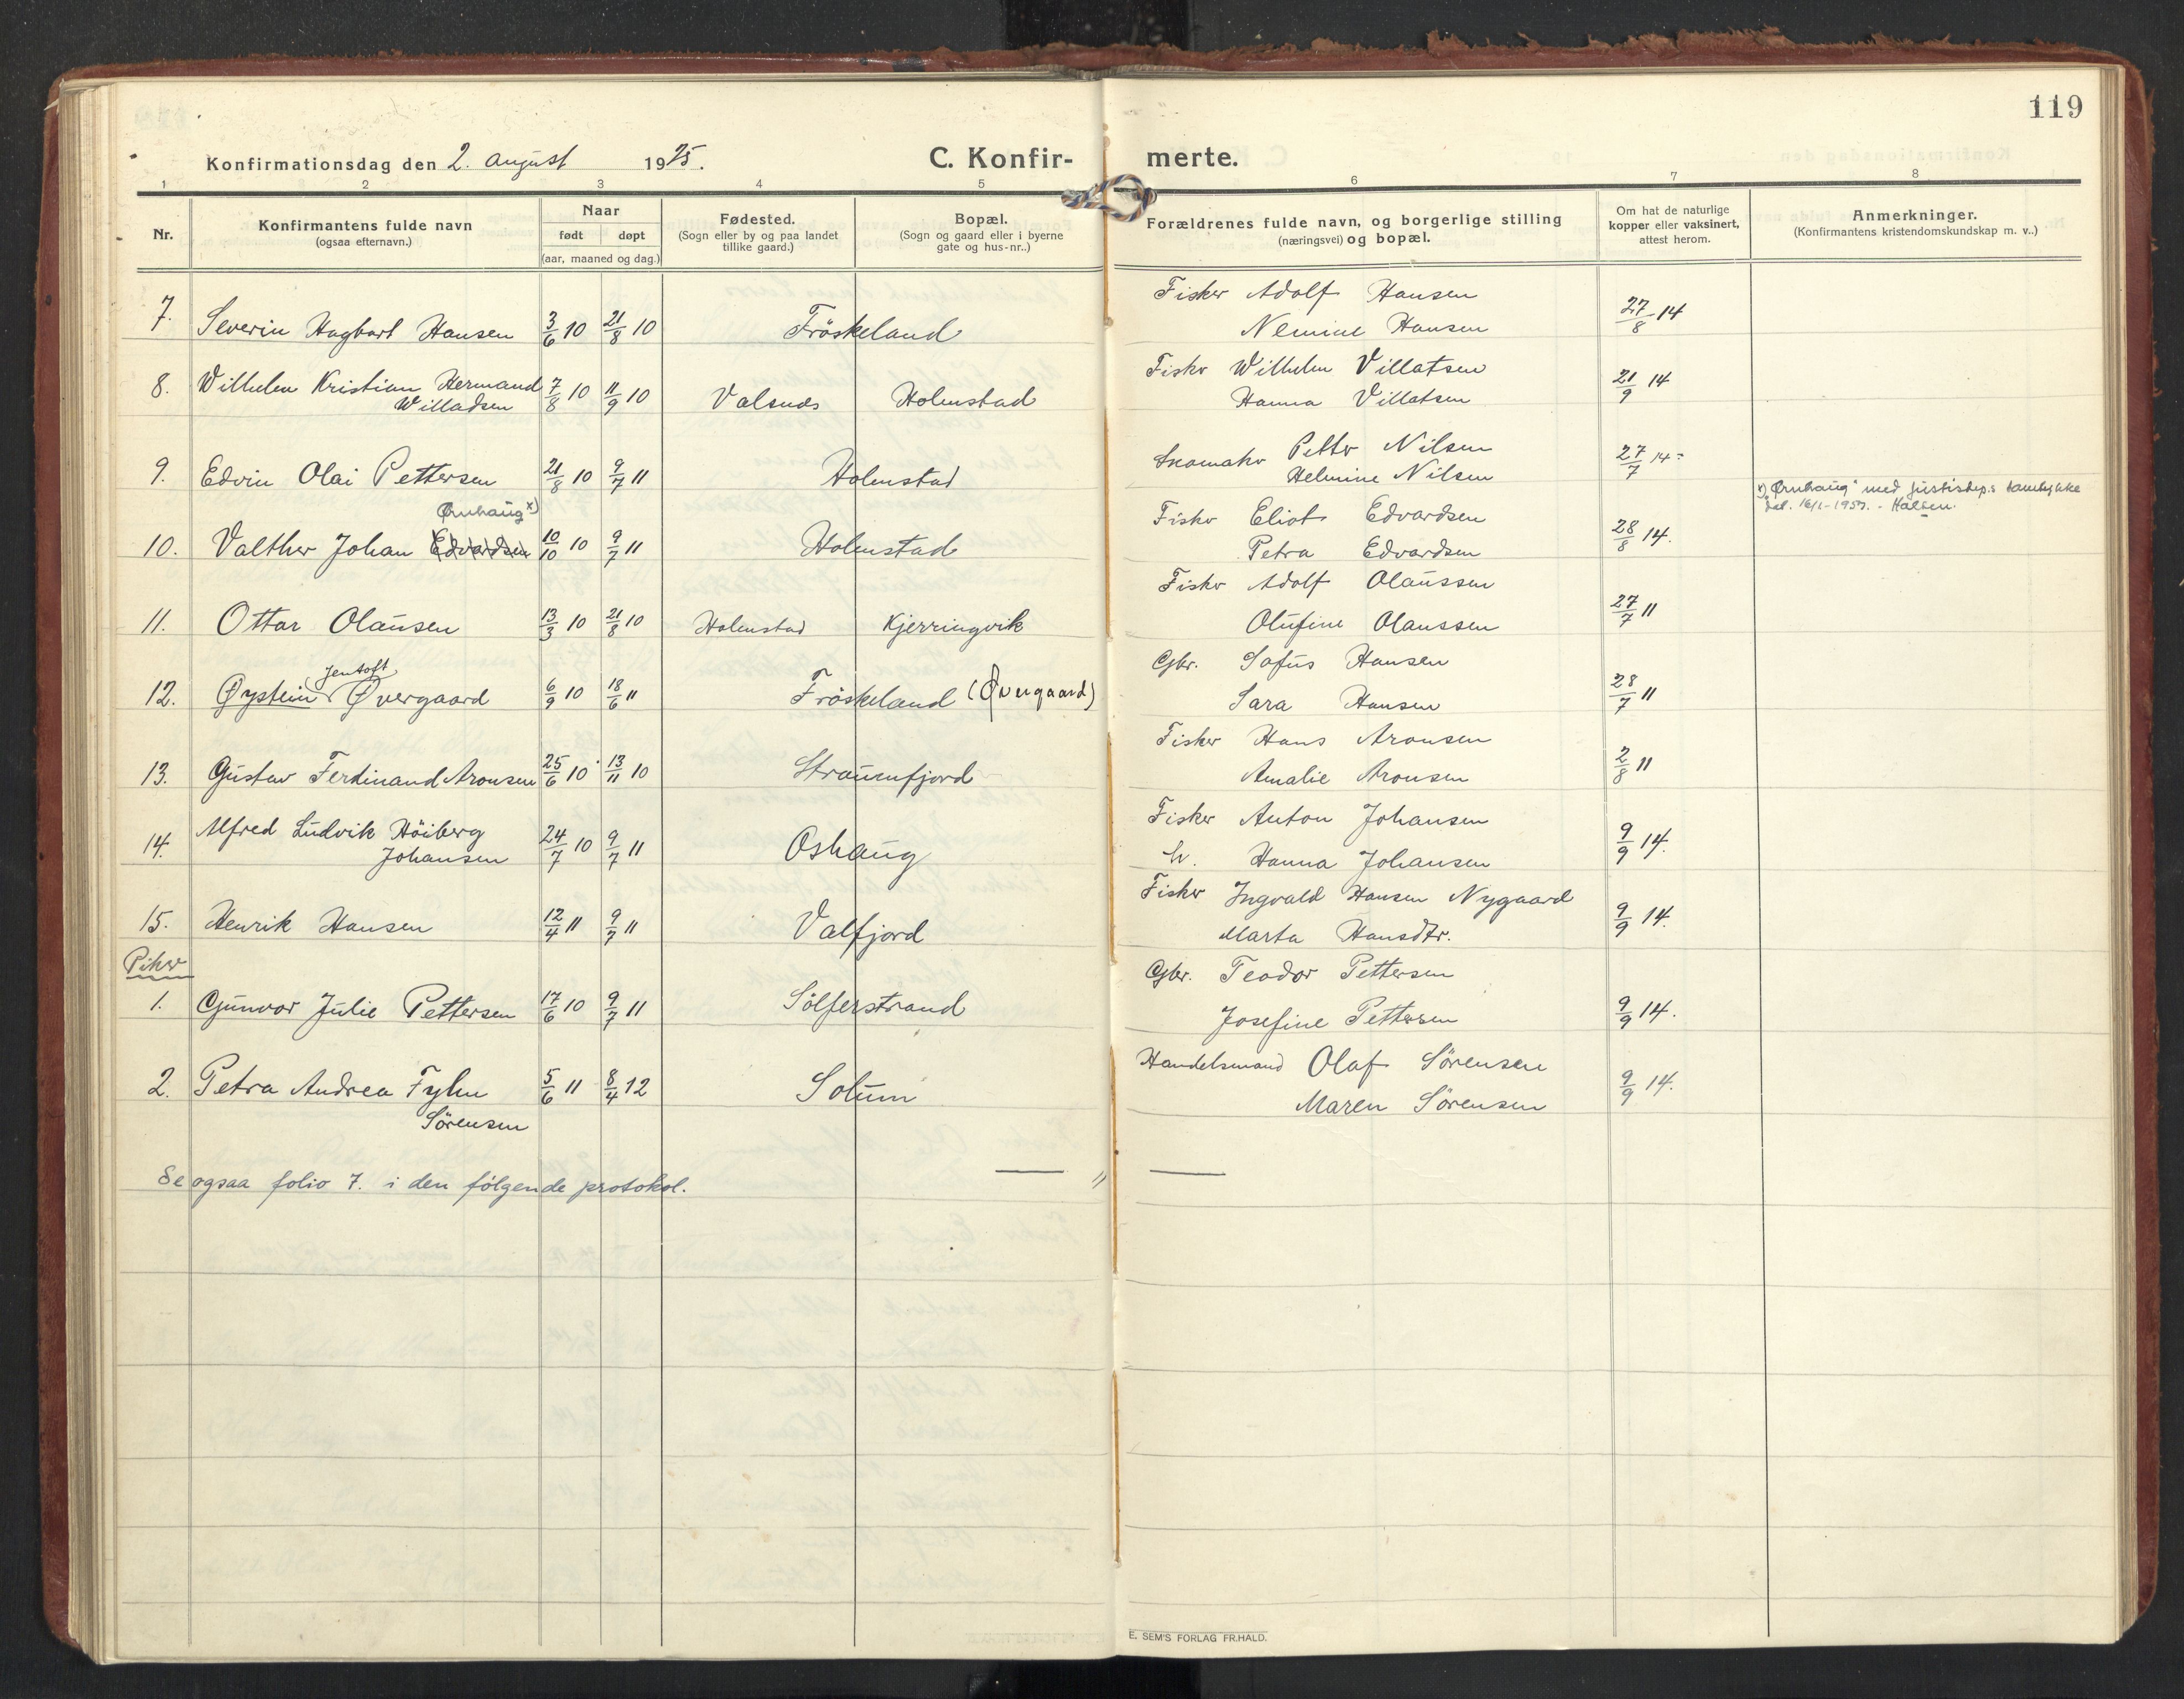 119
Konfirmationsdag den 2. august 1925.
C. Konfir-
merte.
1 2 3 4 5 6 7 8
Nr.
Konfirmantens fulde navn
(ogsaa efternavn.)
Naar
født døpt
(aar, maaned og dag.)
Fødested.
(Sogn eller by og paa landet
tillike gaard.)
Bopæl.
(Sogn og gaard eller i byerne
gate og hus-nr..)
Forældrenes fulde navn, og borgerlige stilling
(næringsvei) og bopæl.
Om hat de naturlige
kopper eller vaksinert,
attest herom.
Anmerkninger.
(Konfirmantens kristendomskundskap m. v..)
Fisker Adolf Hansen
7. Severin Hagbart Hansen 3/6 10 21/8 10 Fröskeland Nemine Hansen 27/8 14
8. Wilhelm Kristian Hermand 7/8 10 11/9 10 Fisker Wilhelm Villatsen 21/9 14
Willadsen Valsnes Holmstad Hanna Villatsen
Skomaker Petter Nilsen
9. Edvin Olai Pettersen 21/8 10 9/7 11 Holmstad Helmine Nilsen 27/7 14
Ørnhaug x) Fisker Eliot Edvardsen x) "Ørnhaug" med justisdep.s samtykke
del. 16/1-1957. - Halsen.
10. Valther Johan Edvardsen 10/10 10 9/7 11 Holmstad Petra Edvardsen 28/8 14.
Fisker Adolf Olaussen
11. Ottar Olausen 13/3 10 21/8 10 Holmstad Kjerringvik Olufine Olaussen 27/7 11
Jentoft Gbr. Sofus Hansen
12. Øystein Øvergaard 6/9 10 18/6 11 Fröskeland (Øvergaard) Sara Hansen 28/7 11
Fisker Hans Aronsen
13. Gustav Ferdinand Aronsen 25/6 10 13/11 10 Straumfjord Amalie Aronsen 2/8 11
Alfred Ludvik Höiberg Fisker Anton Johansen
14. Johansen 24/7 10 9/7 11 Oshaug h. Hanna Johansen 9/9 14.
Fisker Ingvald Hansen Nygaard
15. Henrik Hansen 12/4 11 9/7 11 Valfjord Marta Hansdtr. 9/9 14.
Piker
Gbr. Teodor Pettersen
1. Gunvor Julie Pettersen 17/6 10 9/7 11 Sölferstrand Josefine Pettersen 9/9 14.
Handelsmand Olaf Sörensen
2. Petra Andrea Fylm 5/6 11 8/4 12 Solum Maren Sörensen 9/9 14.
Sörensen
Se ogsaa folio 7. i den følgende protokol.
E. SEM'S FORLAG FR.HALD.